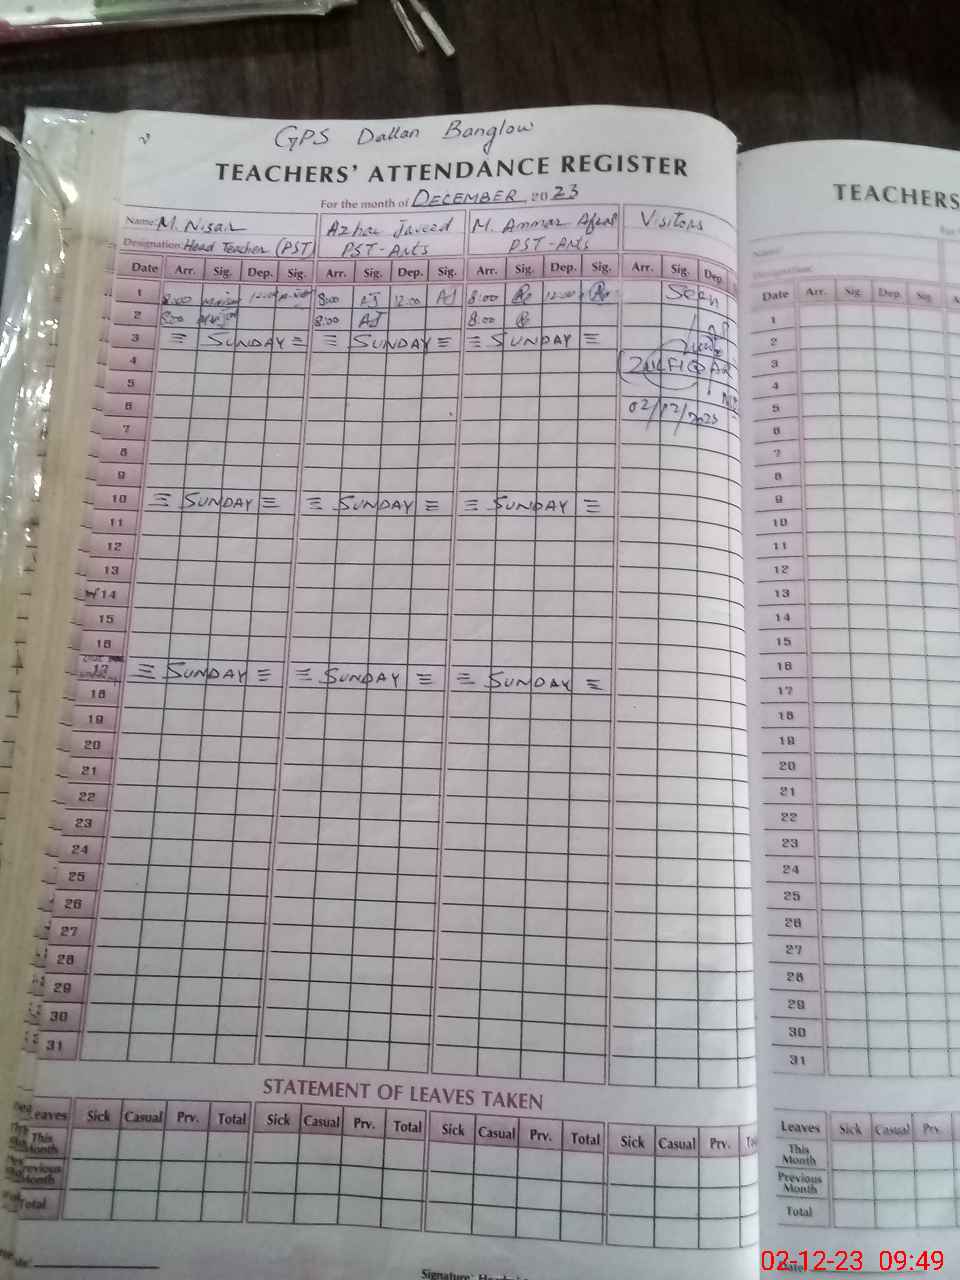 GPS Dallan Banglow
TEACHERS' ATTENDANCE REGISTER
For the month of DECEMBER 2023
Name: M. Nisar Azhar Javeed M. Ammar Afzal Visitors
Designation: Head Teacher (PST) PST-Arts PST-Arts
Date Arr. Sig. Dep. Sig. Arr. Sig. Dep. Sig. Arr. Sig. Dep. Sig. Arr. Sig. Dep.
1 8:00 12:00 8:00 AJ 12:00 AJ 8:00 12:00 Seen
2 8:00 8:00 AJ 8:00
3 SUNDAY SUNDAY SUNDAY
4
5
6 02/12/2023
7
8
9
10 SUNDAY SUNDAY SUNDAY
11
12
13
14
15
16
17 SUNDAY SUNDAY SUNDAY
18
19
20
21
22
23
24
25
26
27
28
29
30
31
STATEMENT OF LEAVES TAKEN
Leaves Sick Casual Prv. Total Sick Casual Prv. Total Sick Casual Prv. Total Sick Casual Prv.
This Month
Previous Month
Total
Signature:
TEACHERS
Date Arr. Sig. Dep. Sig.
1
2
3
4
5
6
7
8
9
10
11
12
13
14
15
16
17
18
19
20
21
22
23
24
25
26
27
28
29
30
31
Leaves Sick Casual Prv.
This Month
Previous Month
Total
Date:
02-12-23 09:49